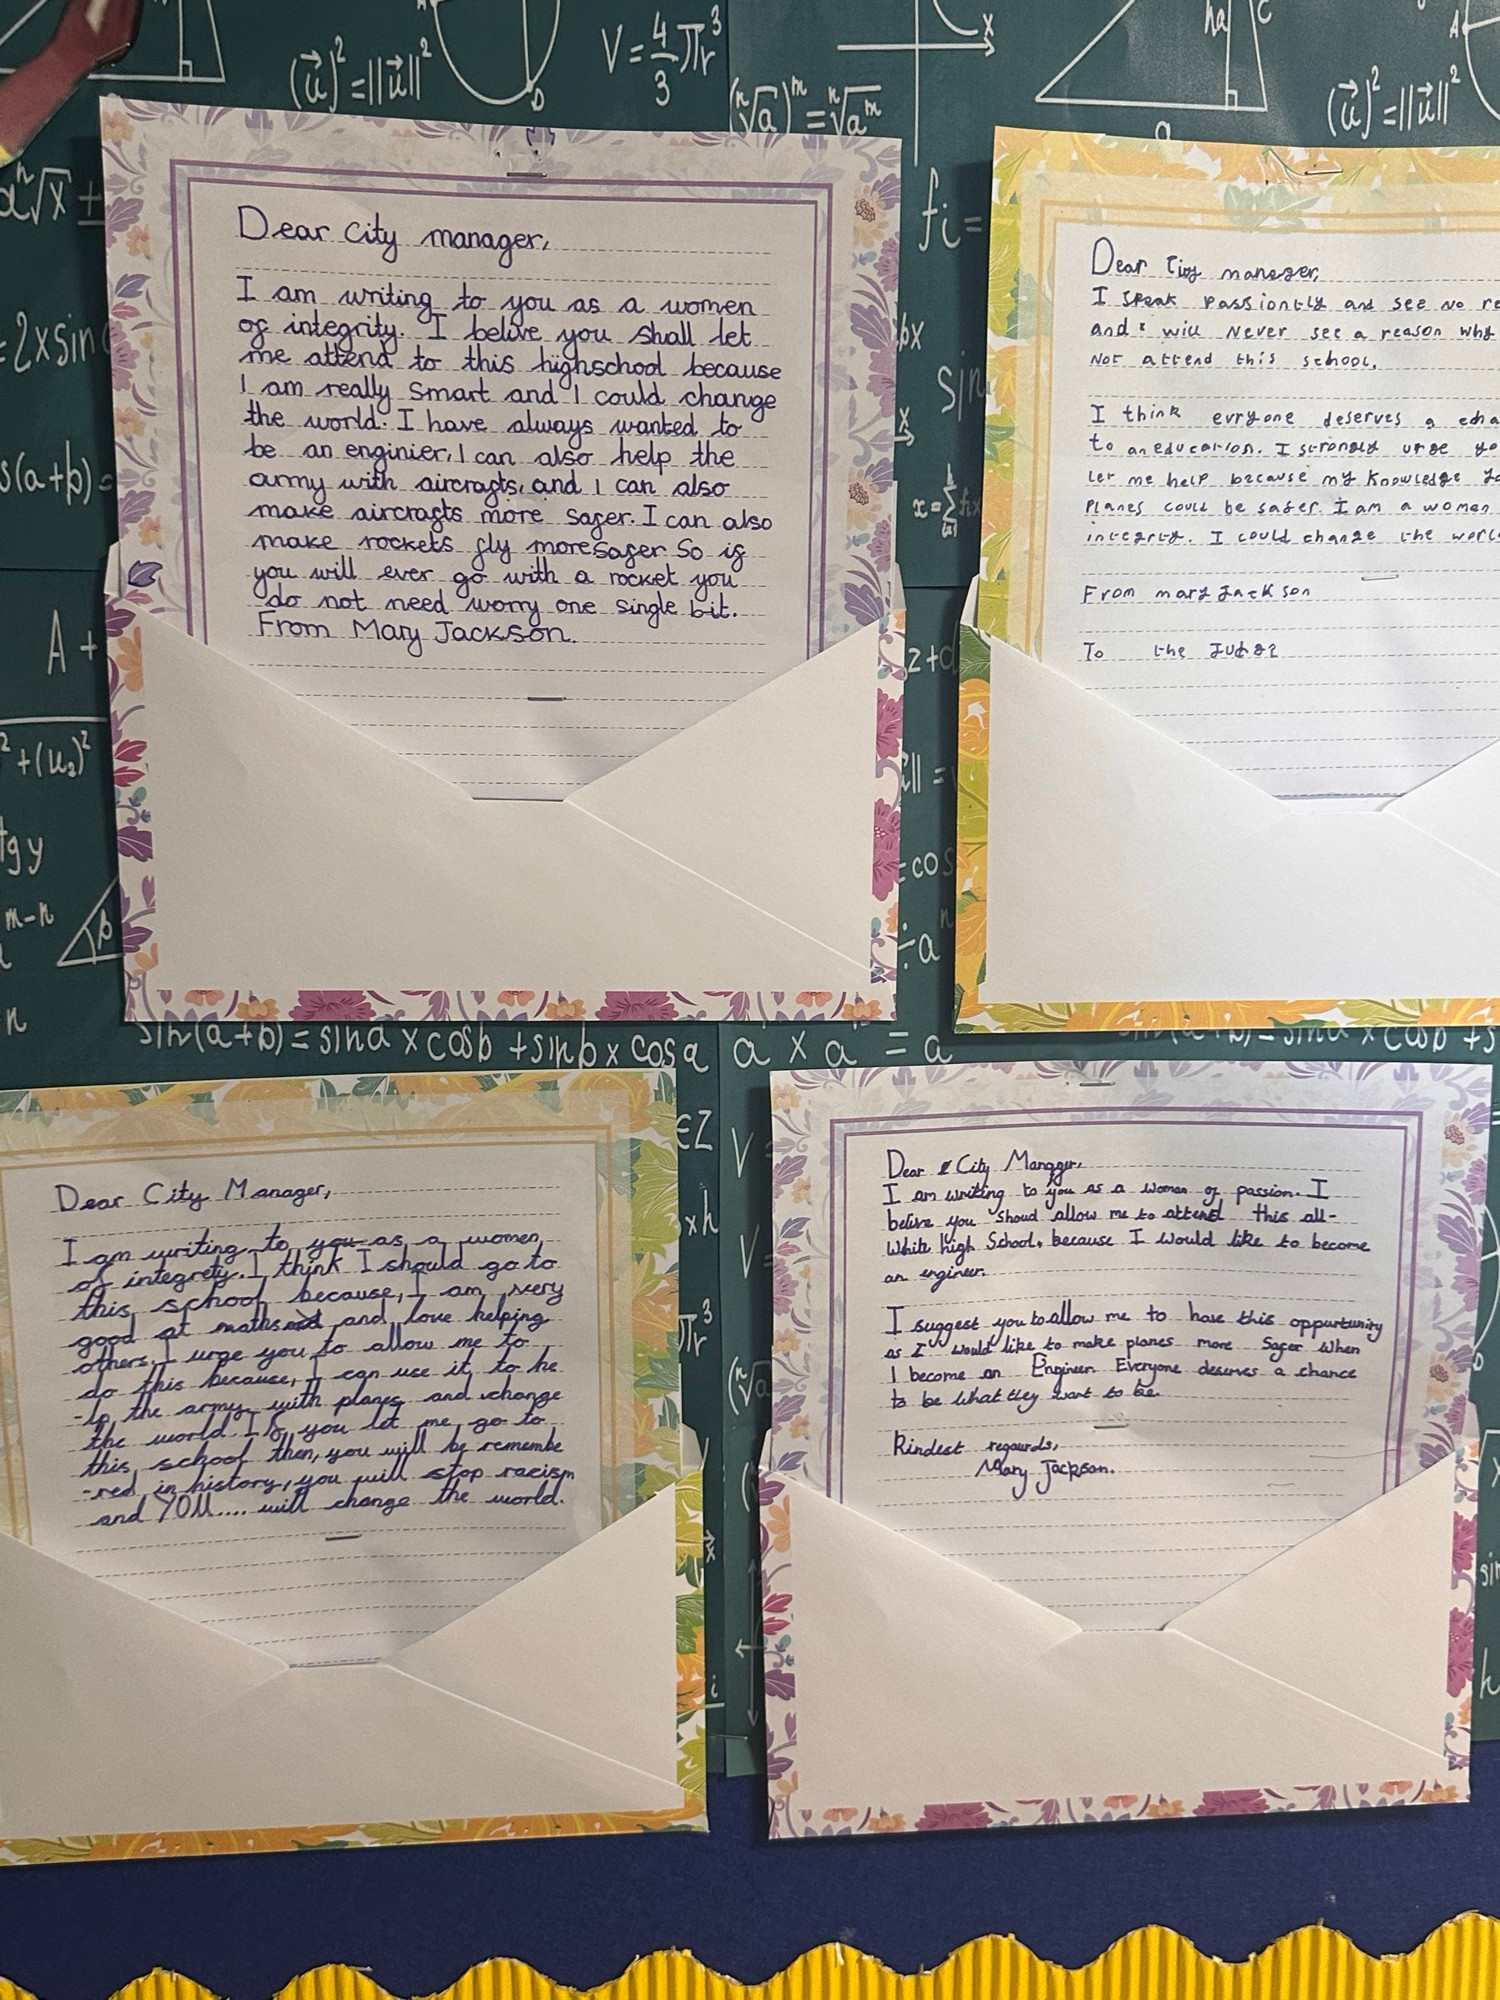 V = 4/3 πr³
(u⃗)² = ||u⃗||²
D
(ⁿ√a)ᵐ = ⁿ√aᵐ
x
ha
C
(u⃗)² = ||u⃗||²
Dear City manager,
I am writing to you as a women
of integrity. I belive you shall let
me attend to this highschool because
I am really smart and I could change
the world. I have always wanted to
be an enginier, I can also help the
army with aircrafts, and I can also
make aircrafts more safer. I can also
make rockets fly more safer So if
you will ever go with a rocket you
do not need worry one single bit.
From Mary Jackson.
Dear City maneger,
I speak passiontly and see no re
and I will never see a reason why
not attend this school.
I think evryone deserves a
to an education. I strongly urge yo
let me help because my knowledge
planes could be safer. I am a women
integrity. I could change the worl
From mary Jackson
To the Judge
sin(a+b) = sina x cosb + sinb x cosa
a x a = a
Dear City Manager,
I am writing to you as a women
of integrety. I think I should go to
this school because, I am very
good at maths and love helping
others. I urge you to allow me to
do this because, I can use it to he
-lp the army with planes and change
the world. If you let me go to
this school then, you will be remembe
-red in history, you will stop racism
and YOU.... will change the world.
Dear City Manager,
I am writing to you as a woman of passion. I
belive you shoud allow me to attend this all-
White high School, because I would like to become
an engineer.
I suggest you to allow me to have this oppurtunity
as I would like to make planes more Safer When
I become an Engineer. Everyone deserves a chance
to be what they want to be.
Kindest regards,
Mary Jackson.